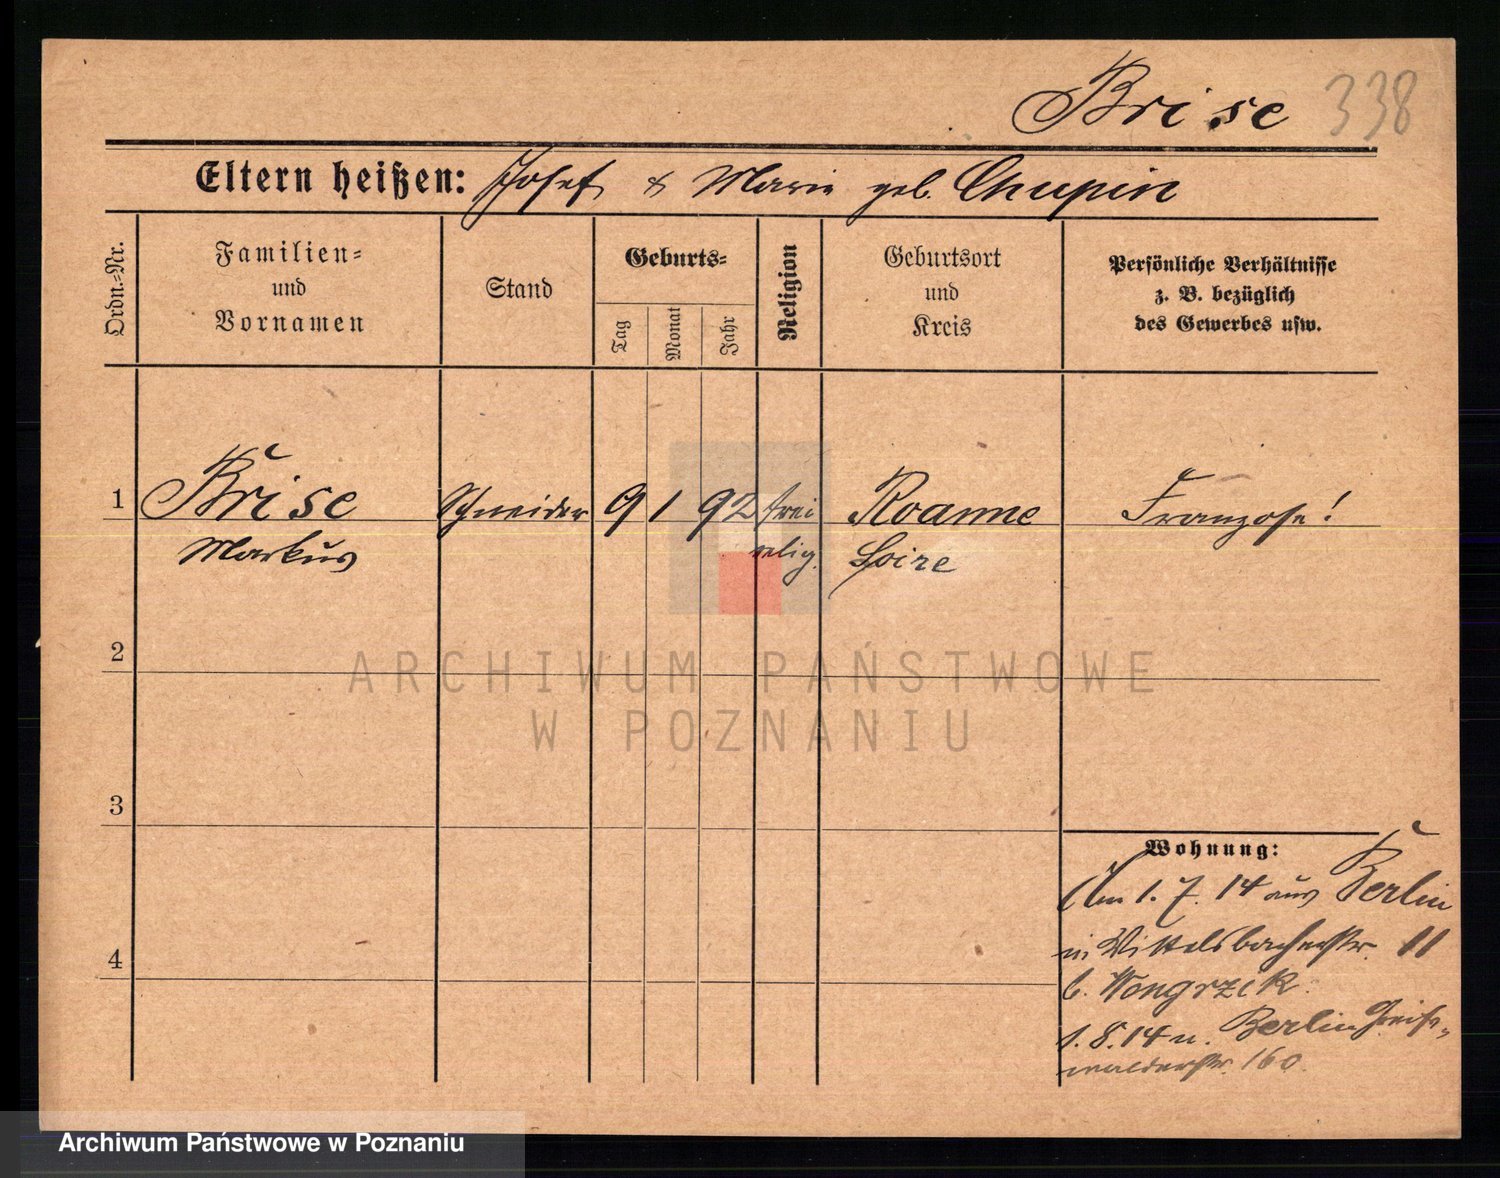 Brise 338
Eltern heißen: Josef & Marie geb. Chupin
Ordn.-Nr.
Familien- und Vornamen
Stand
Geburts-
Tag
Monat
Jahr
Religion
Geburtsort und Kreis
Persönliche Verhältnisse z. B. bezüglich des Gewerbes usw.
1 Brise Schneider 9 1 92 frei Roanne Franzose!
Markus relig. Loire
2
3
4
Wohnung:
Am 1. 7. 14 aus Berlin
in Wittelsbacherstr. 11
b. Wongrzek
1. 8. 14 n. Berlin Greifs-
walderstr. 160.
ARCHIWUM PAŃSTWOWE
W POZNANIU
Archiwum Państwowe w Poznaniu